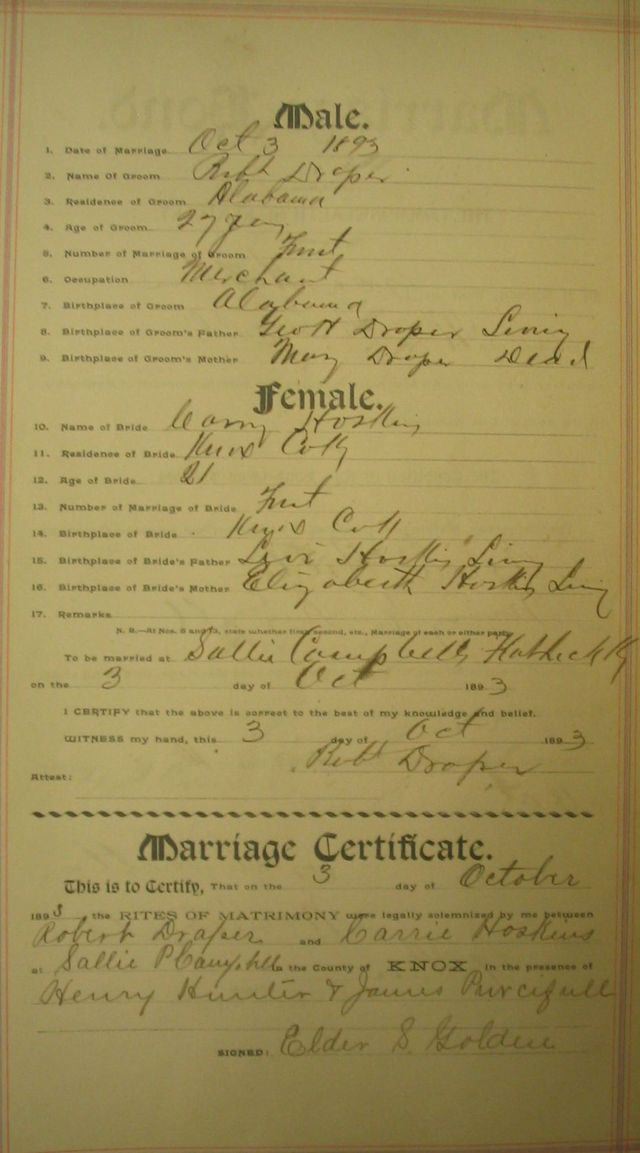 Male.
1. Date of Marriage Oct 3 1893
2. Name Of Groom Robt Draper
3. Residence of Groom Alabama
4. Age of Groom 27 years
5. Number of Marriage of Groom First
6. Occupation Merchant
7. Birthplace of Groom Alabama
8. Birthplace of Groom's Father Draper Living
9. Birthplace of Groom's Mother Mary Draper Dead
Female.
10. Name of Bride Carry Hoskins
11. Residence of Bride Knox Co Ky
12. Age of Bride 21
13. Number of Marriage of Bride First
14. Birthplace of Bride Knox Co Ky
15. Birthplace of Bride's Father Levi Hoskins Living
16. Birthplace of Bride's Mother Elizabeth Hoskins Living
17. Remarks
N. B.—At Nos. 5 and 13, state whether first, second, etc., Marriage of each or either party.
To be married at Sallie Campbells Ky
on the 3 day of Oct 1893
I CERTIFY that the above is correct to the best of my knowledge and belief.
WITNESS my hand, this 3 day of Oct 1893
Robt Draper
Attest:
Marriage Certificate.
This is to Certify, That on the 3 day of October
1893 the RITES OF MATRIMONY were legally solemnized by me between
Robert Draper and Carrie Hoskins
at Sallie P Campbells in the County of KNOX in the presence of
Henry Hunter & James Purcifull
SIGNED: Elder S. Golden